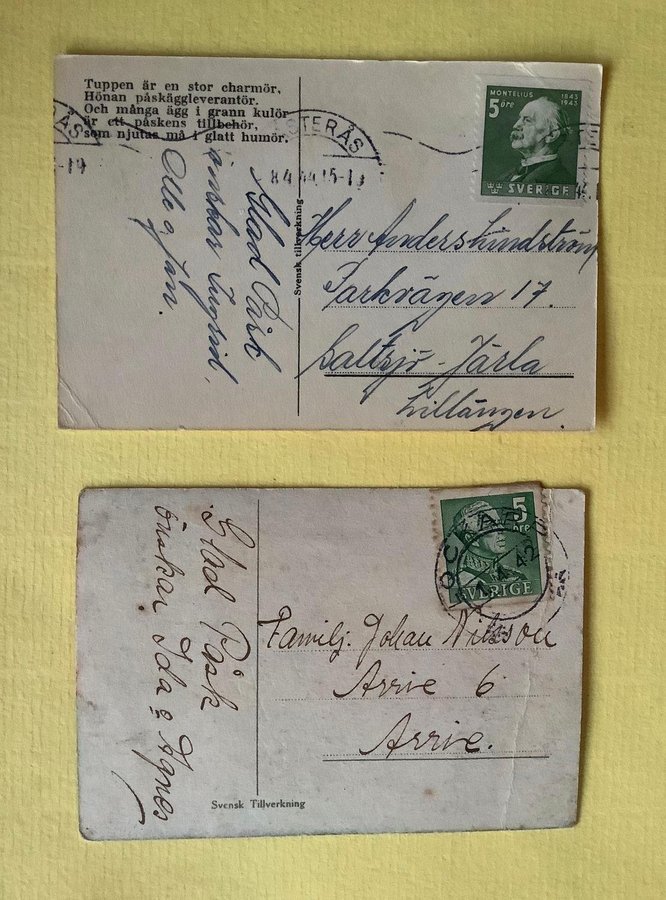 Tuppen är en stor charmör,
Hönan påskäggleverantör.
Och många ägg i grann kulör
är ett påskens tillbehör,
som njutas må i glatt humör.
STERÅS
8.4.44.15-19
MONTELIUS 1843 1943
5 öre
SVERIGE
Glad Påsk
önskar Ingrid,
Olle o Jan.
Svensk tillverkning
Herr Anders Lindström
Parkvägen 17.
Saltsjö-Järla
Lillängen.
5 öre
SVERIGE
Glad Påsk
önskar Ida o Agnes
Familj. Johan Nilsson
Arrie 6
Arrie.
Svensk Tillverkning